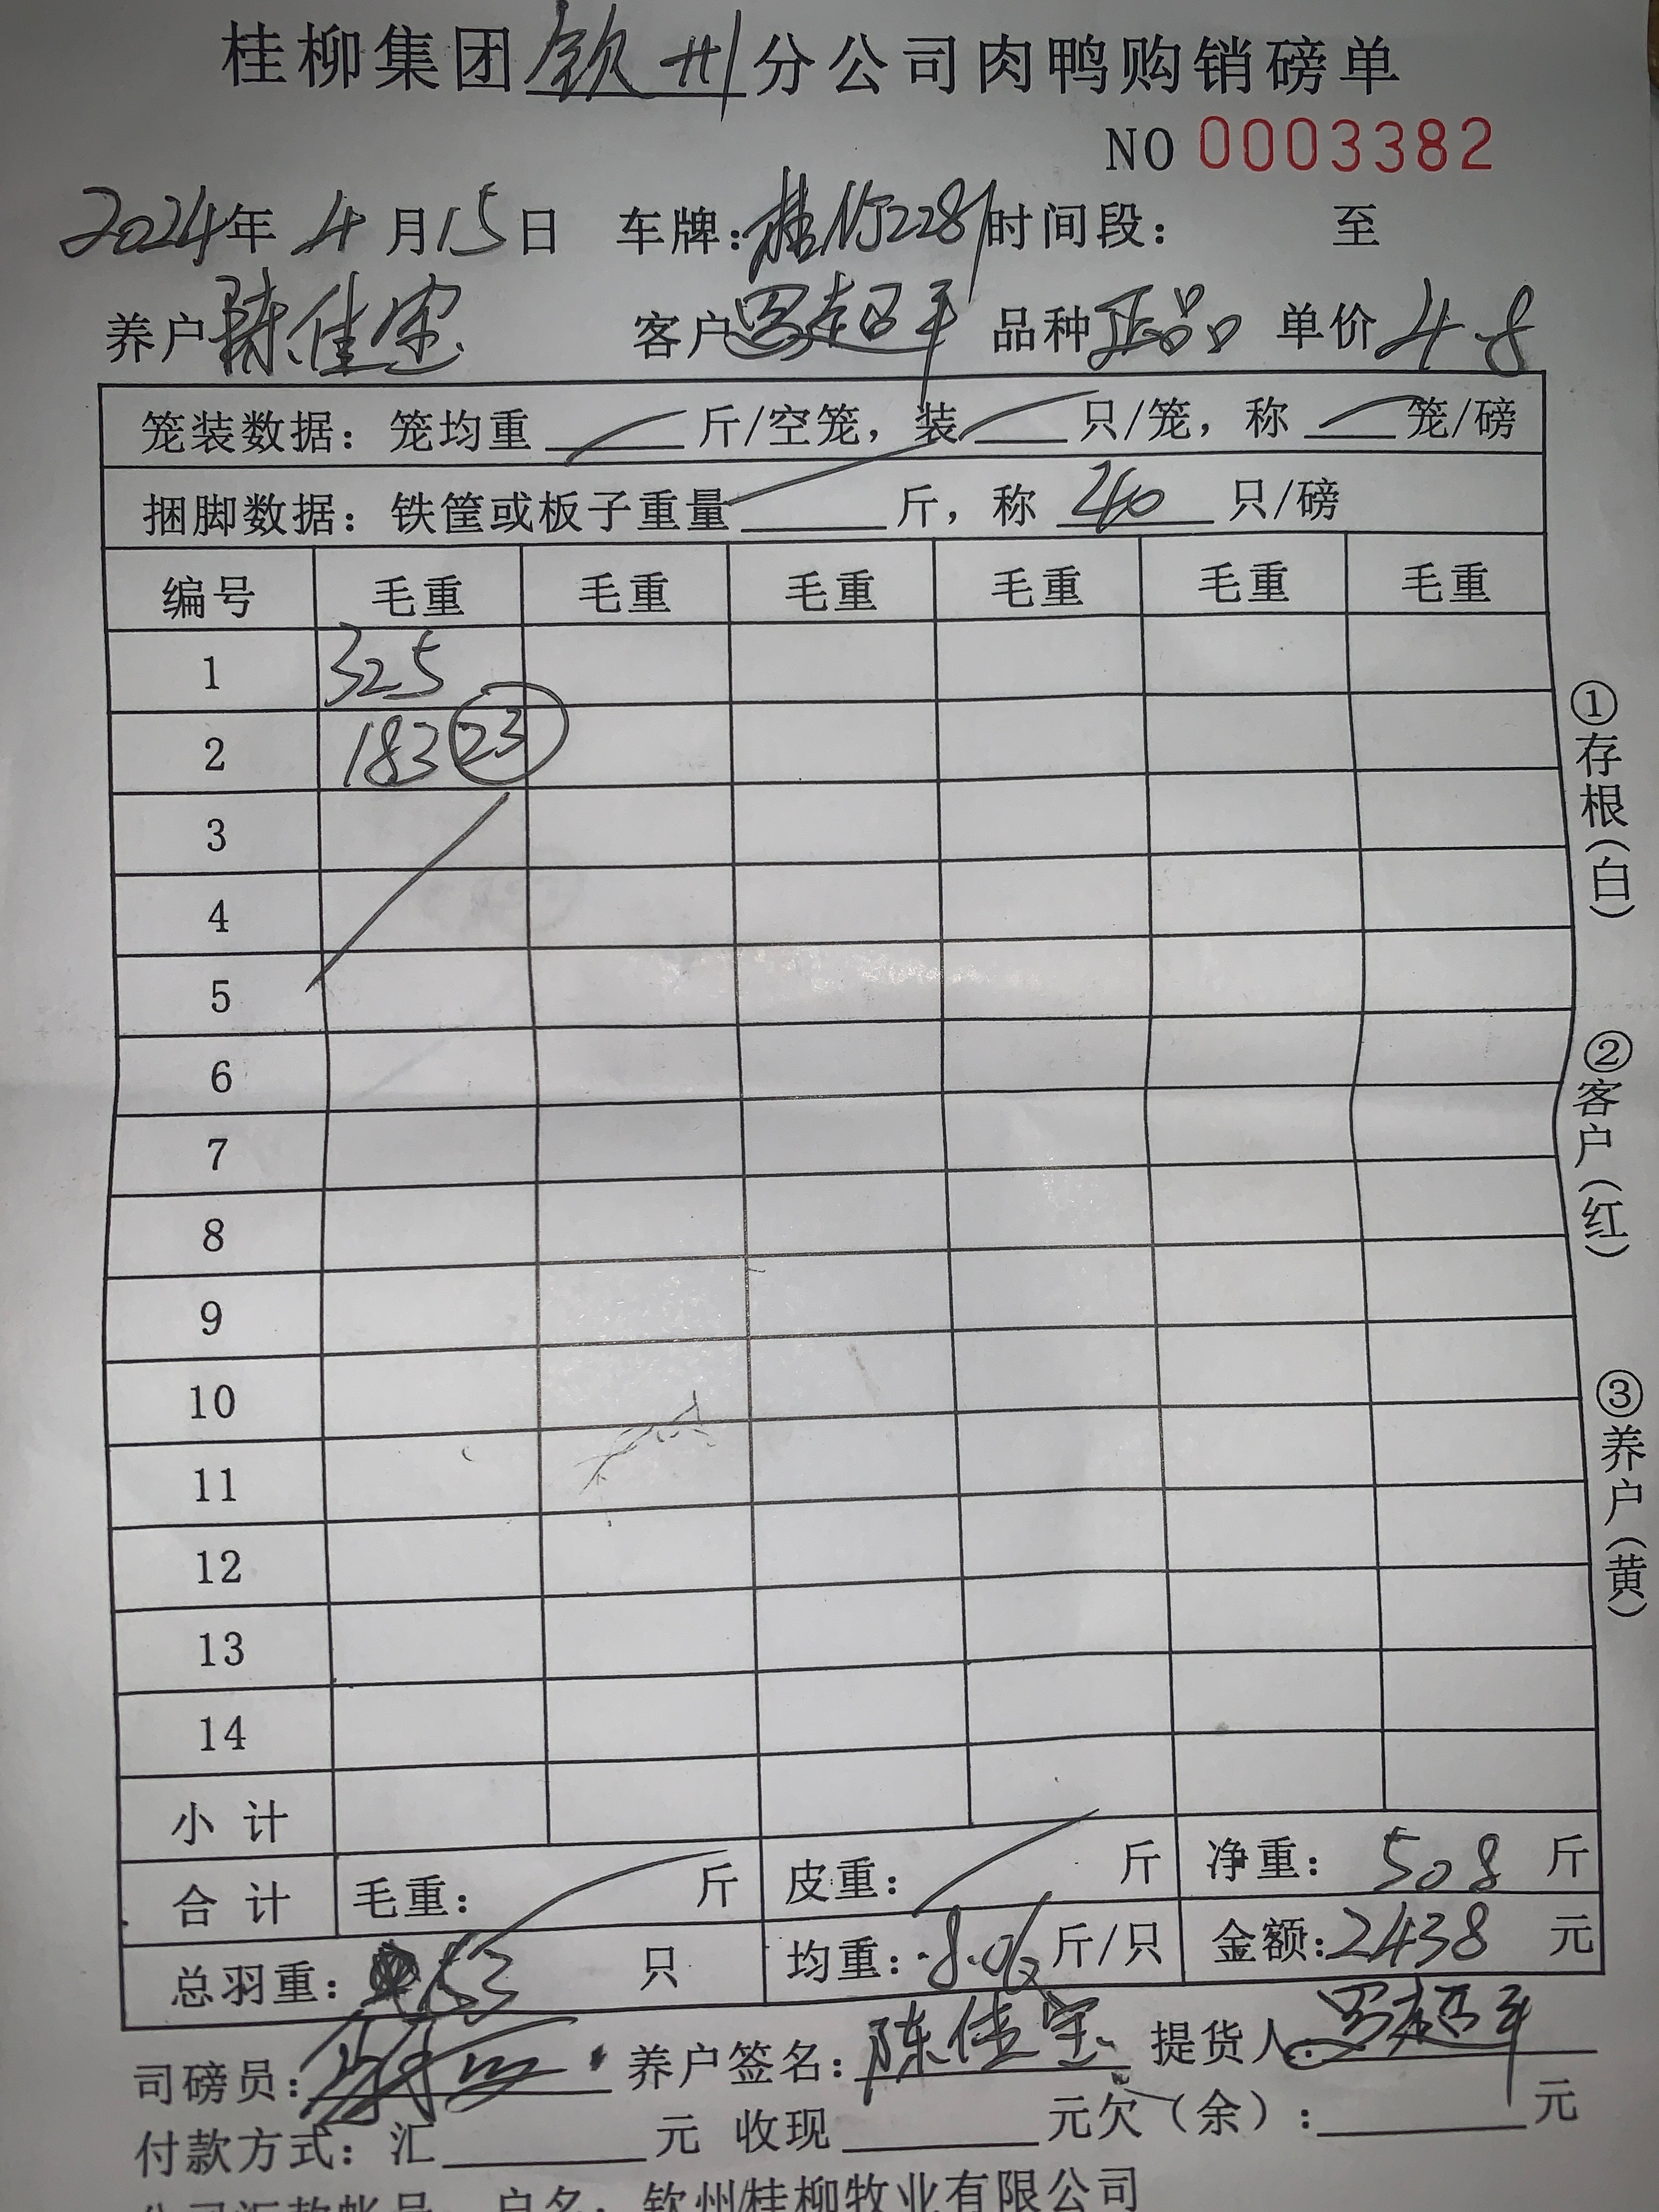 桂柳集团钦州分公司肉鸭购销磅单
NO 0003382
2024年 4月15日 车牌:桂NJ2281时间段: 至
养户陈佳宝 客户罗超平 品种正品 单价4.8
笼装数据: 笼均重 斤/空笼, 装 只/笼, 称 笼/磅
捆脚数据: 铁筐或板子重量 斤, 称 40 只/磅
编号 毛重 毛重 毛重 毛重 毛重 毛重
1 325
2 183 23
3
4
5
6
7
8
9
10
11
12
13
14
小计
合计 毛重: 斤 皮重: 斤 净重: 508 斤
总羽重: 63 只 均重: 8.06 斤/只 金额:2438 元
司磅员: 养户签名:陈佳宝 提货人:罗超平
付款方式: 汇 元 收现 元欠(余): 元
户名: 钦州桂柳牧业有限公司
①存根(白)
②客户(红)
③养户(黄)